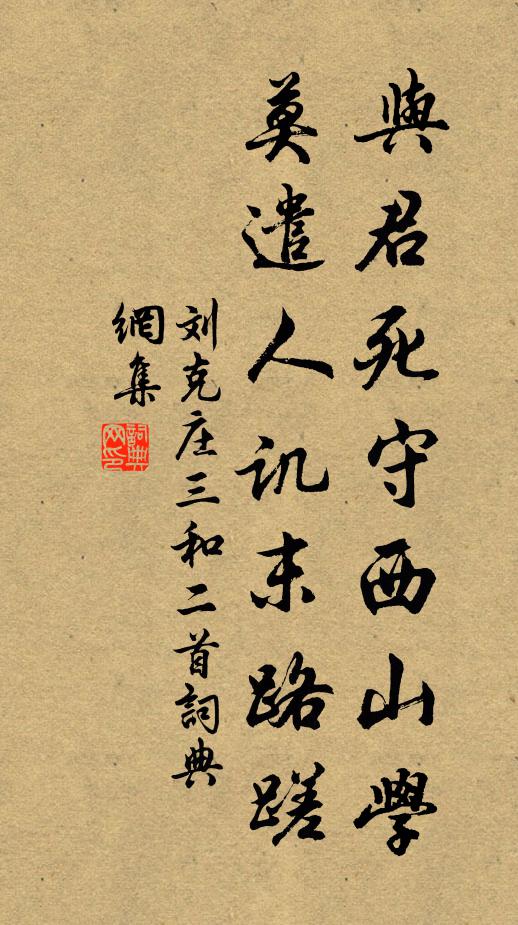 與君死守西山學
莫遣人讥末路蹉
刘克庄三和二首詞典
網集
詞典
网印